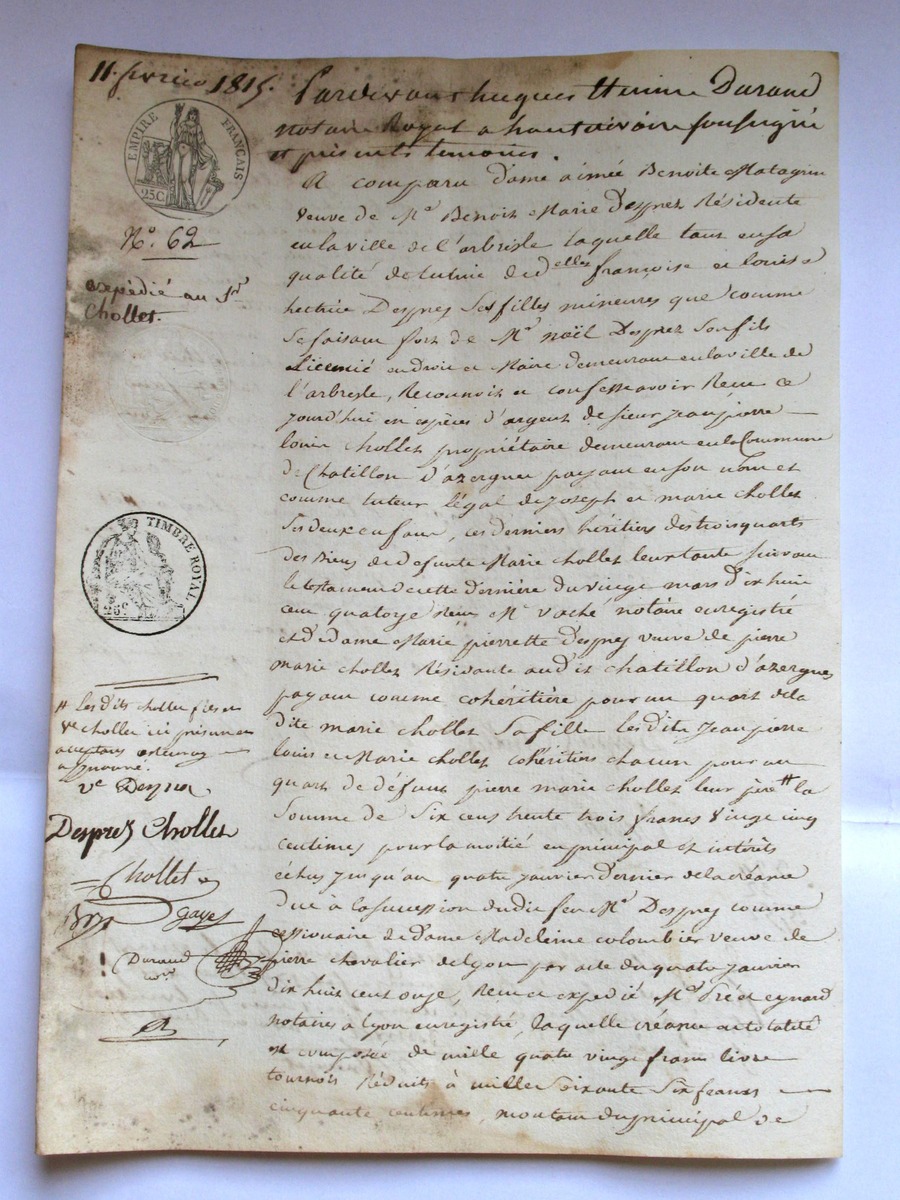 11. fevrier 1815.
EMPIRE FRANÇAIS
25C
N°. 62
expédié au Sr
Chollet.
TIMBRE ROYAL
25c
Pardevant hugues Durand
notaire Royal a soussigné
et présents temoins.
A comparu dame aimée Benoite Matagrin
veuve de Mr Benoit Marie Desprez Résidente
en la ville de l'arbresle laquelle tant en sa
qualité de tutrice de delles françoise et louise
Desprez ses filles mineures que comme
se faisant fort de Mr noël Desprez son fils
Licencié en droit et Maire demeurant en la ville de
l'arbresle, Reconnoit et confesse avoir Recu ce
jourd'hui en espèces d'argent de sieur jean pierre
louis chollet propriétaire demeurant en la Commune
de Chatillon d'azergues payant en son nom et
comme tuteur légal de joseph et marie chollet
ses deux enfans, ces derniers héritiers des trois quarts
des Biens de defunte Marie chollet leur tante suivant
le testament de cette dernière du vingt mars dix huit
cent quatorze Recu Mr vaché notaire enregistré
et de dame Marie pierrette Desprez veuve de pierre
marie chollet Résidante audit chatillon d'azergues
payant comme cohéritière pour un quart de la
dite marie chollet sa fille lesdits jean pierre
louis et Marie chollet cohéritiers chacun pour un
quart de défunt pierre marie chollet leur père # la
Somme de Six cent trente trois francs vingt cinq
centimes pour la moitié en principal et intérêts
échus jusqu'au quatre janvier dernier de la créance
due à la succession dudit feu Mr Desprez comme
cessionaire de dame Madeleine colombier veuve de
pierre chevalier de lyon par acte du quatre janvier
dix huit cent onze, Recu et expedié Mes Pré et eynard
notaires à lyon enregistré, laquelle créance en totalité
est composée de mille quatre vingt francs livre
tournois Réduits à mille Soixante Six francs
cinquante centimes, montant du principal de
# Les dits chollet fils et
ve chollet ici présents et
acceptans
approuvé.
ve Desprez
Desprez Chollet
Chollet
Gayet
Durand
nre